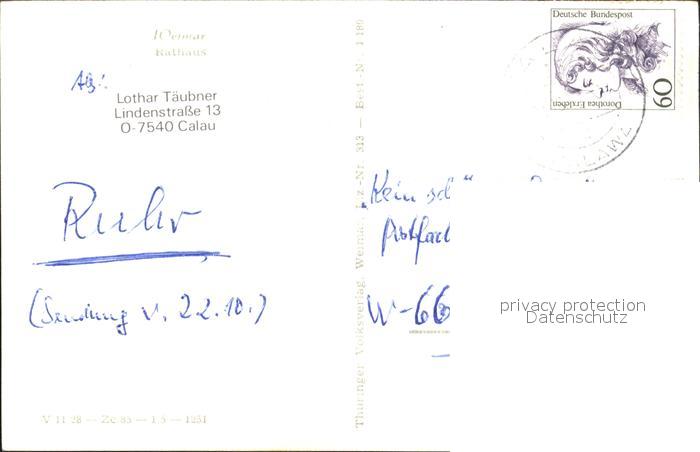 Weimar
Rathaus
Abs:
Lothar Täubner
Lindenstraße 13
O-7540 Calau
Ruhr
(Sendung v. 22.10.)
V 11 28 — Ze 85 — 1,5 — 1251
Thüringer Volksverlag, Weimar
313 — Best.-Nr. 1 180
Deutsche Bundespost
Dorothea Erxleben
60
„Kein
Postfach
W-66
privacy protection
Datenschutz